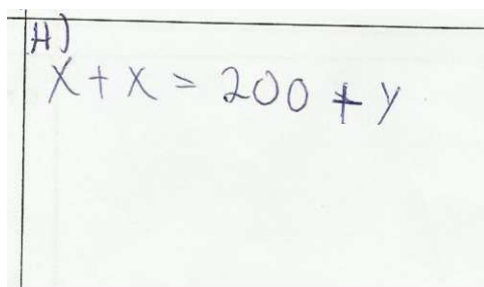 H)
X + X = 200 + y